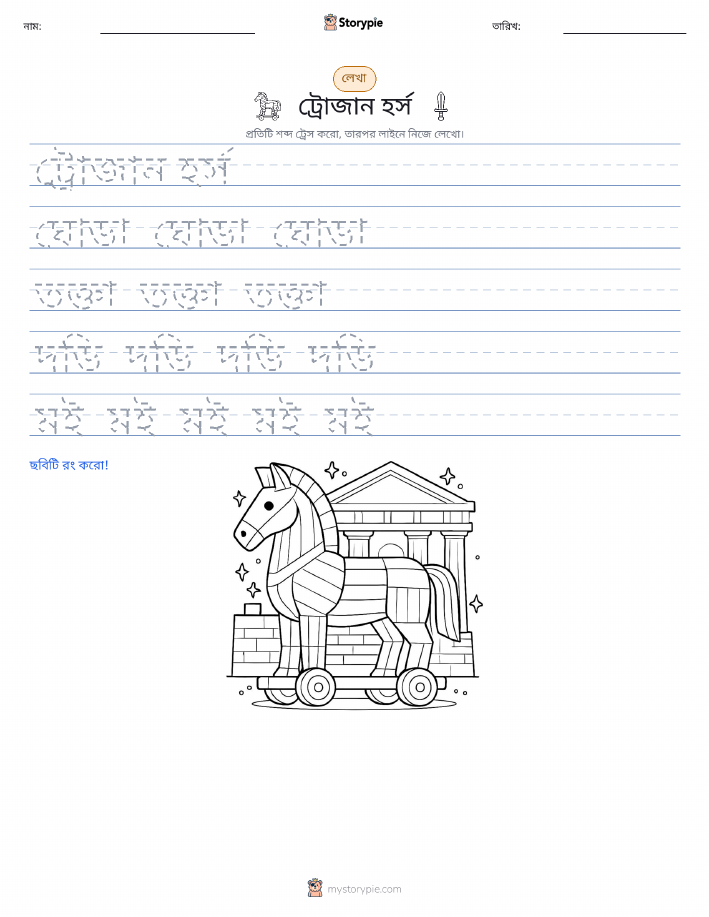 নাম:
Storypie
তারিখ:
লেখা
ট্রোজান হর্স
প্রতিটি শব্দ ট্রেস করো, তারপর লাইনে নিজে লেখো।
ট্রোজান হর্স
ঘোড়া ঘোড়া ঘোড়া
তক্তা তক্তা তক্তা
দড়ি দড়ি দড়ি দড়ি
মই মই মই মই মই
ছবিটি রং করো!
mystorypie.com